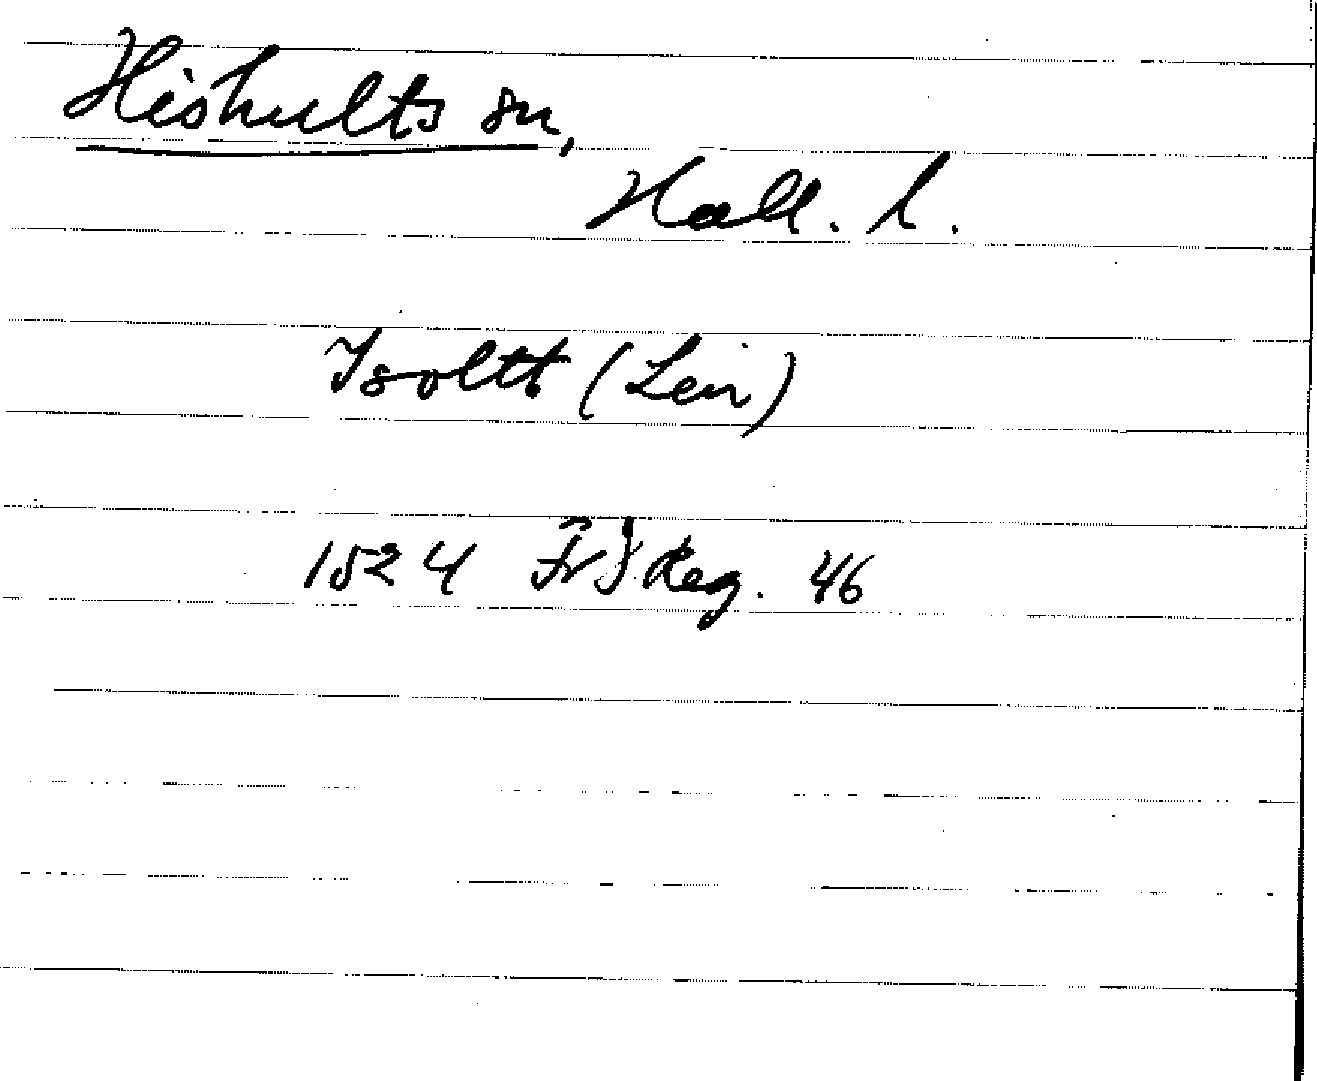 Hishults sn,
Hall. l.
Isoltt (Lein)
1524 FrI Reg. 46